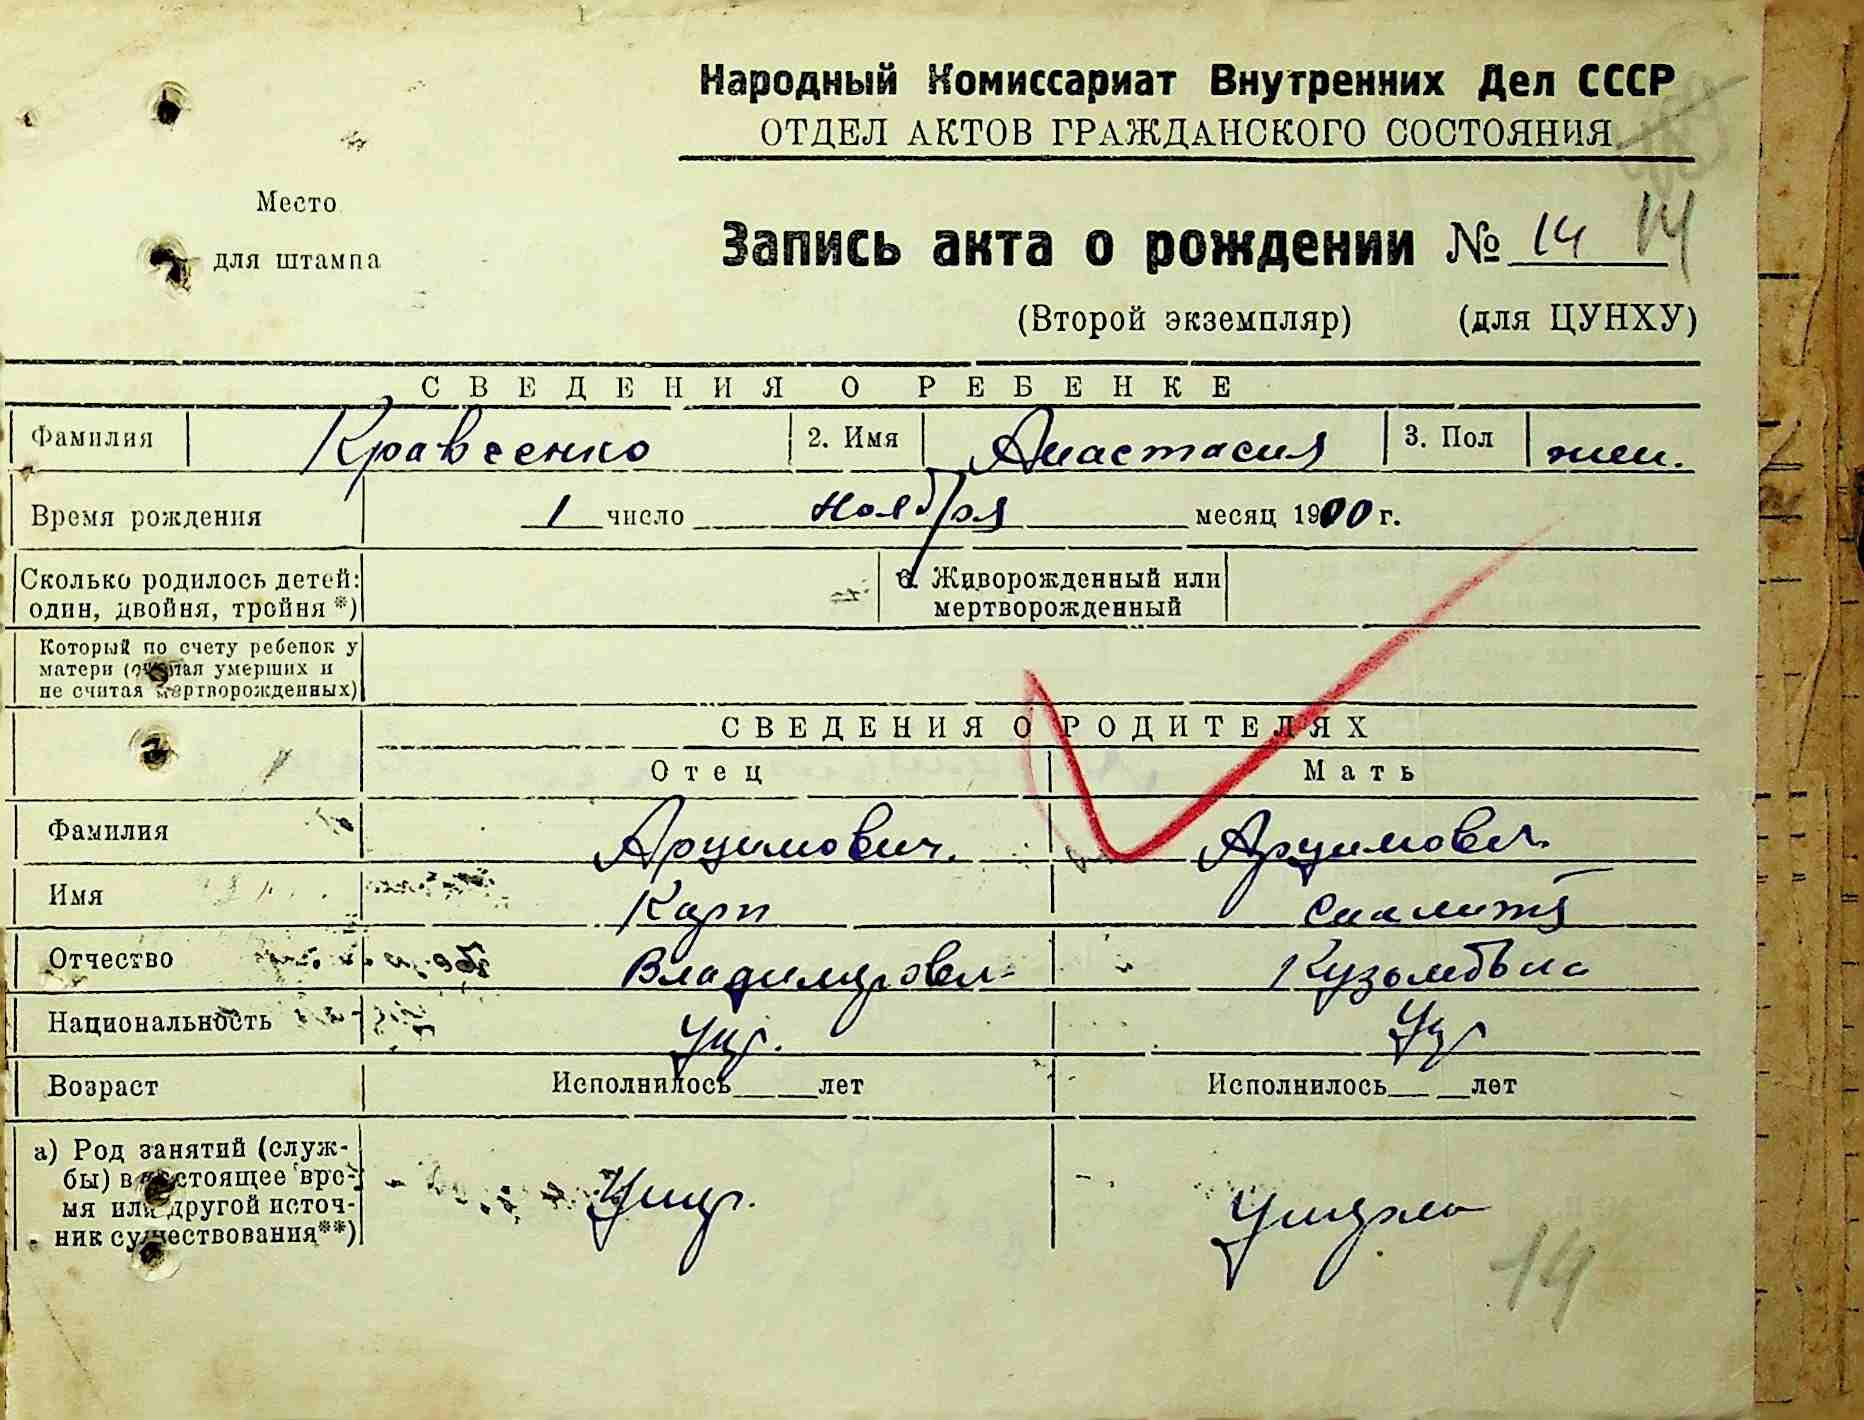 Народный Комиссариат Внутренних Дел СССР
ОТДЕЛ АКТОВ ГРАЖДАНСКОГО СОСТОЯНИЯ
Место
для штампа
Запись акта о рождении № 14 14
(Второй экземпляр) (для ЦУНХУ)
СВЕДЕНИЯ О РЕБЕНКЕ
Фамилия Кравсенко 2. Имя Анастасия 3. Пол жен.
Время рождения 1 число ноября месяц 1900 г.
Сколько родилось детей: один, двойня, тройня *) 6. Живорожденный или мертворожденный
Который по счету ребенок у
матери (считая умерших и
не считая мертворожденных)
СВЕДЕНИЯ О РОДИТЕЛЯХ
Отец Мать
Фамилия Арцимович. Арцимович
Имя Карп
Отчество Владимирович
Национальность Укр. Укр
Возраст Исполнилось лет Исполнилось лет
а) Род занятий (служ-
бы) в настоящее вре-
мя или другой источ-
ник существования**) Умер. Умерла
14